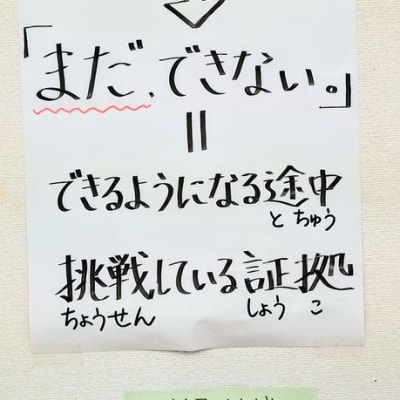 「まだ、できない。」
＝
できるようになる途中
とちゅう
挑戦している証拠
ちょうせん しょうこ